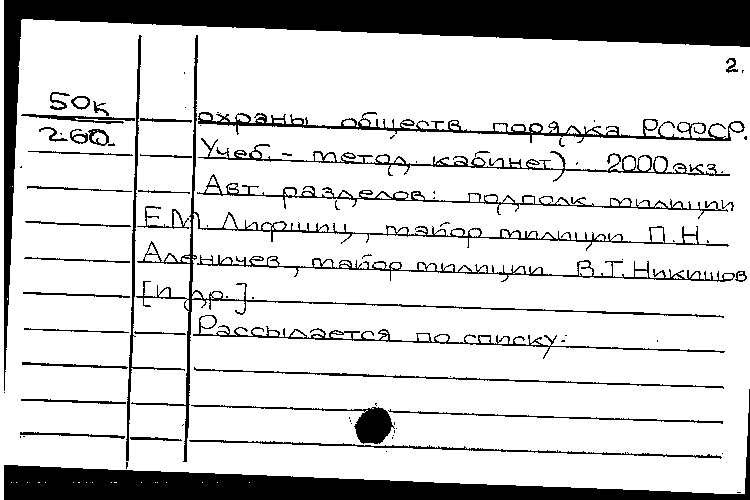 2.
50к
260
охраны обществ. порядка РСФСР.
Учеб.-метод. кабинет). 2000 экз.
Авт. разделов: подполк. милиции
Е.М. Лифшиц, майор милиции П.Н.
Аленичев, майор милиции В.Т. Никишов
[и др.].
Рассылается по списку.